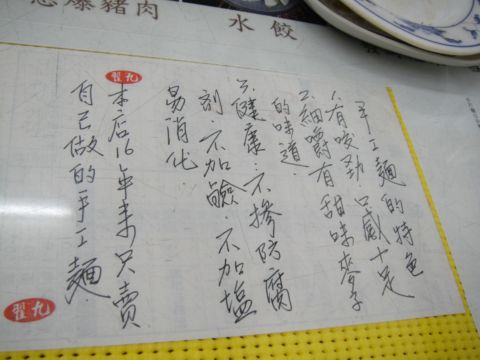 爆豬肉
水餃
手工麵的特色
1.有咬勁口感十足
2.細嚼有甜味麥子
的味道.
3.健康:不摻防腐
剤不加鹼.不加塩
易消化.
翟九
本店16年来只賣
自己做的手工麵
翟九